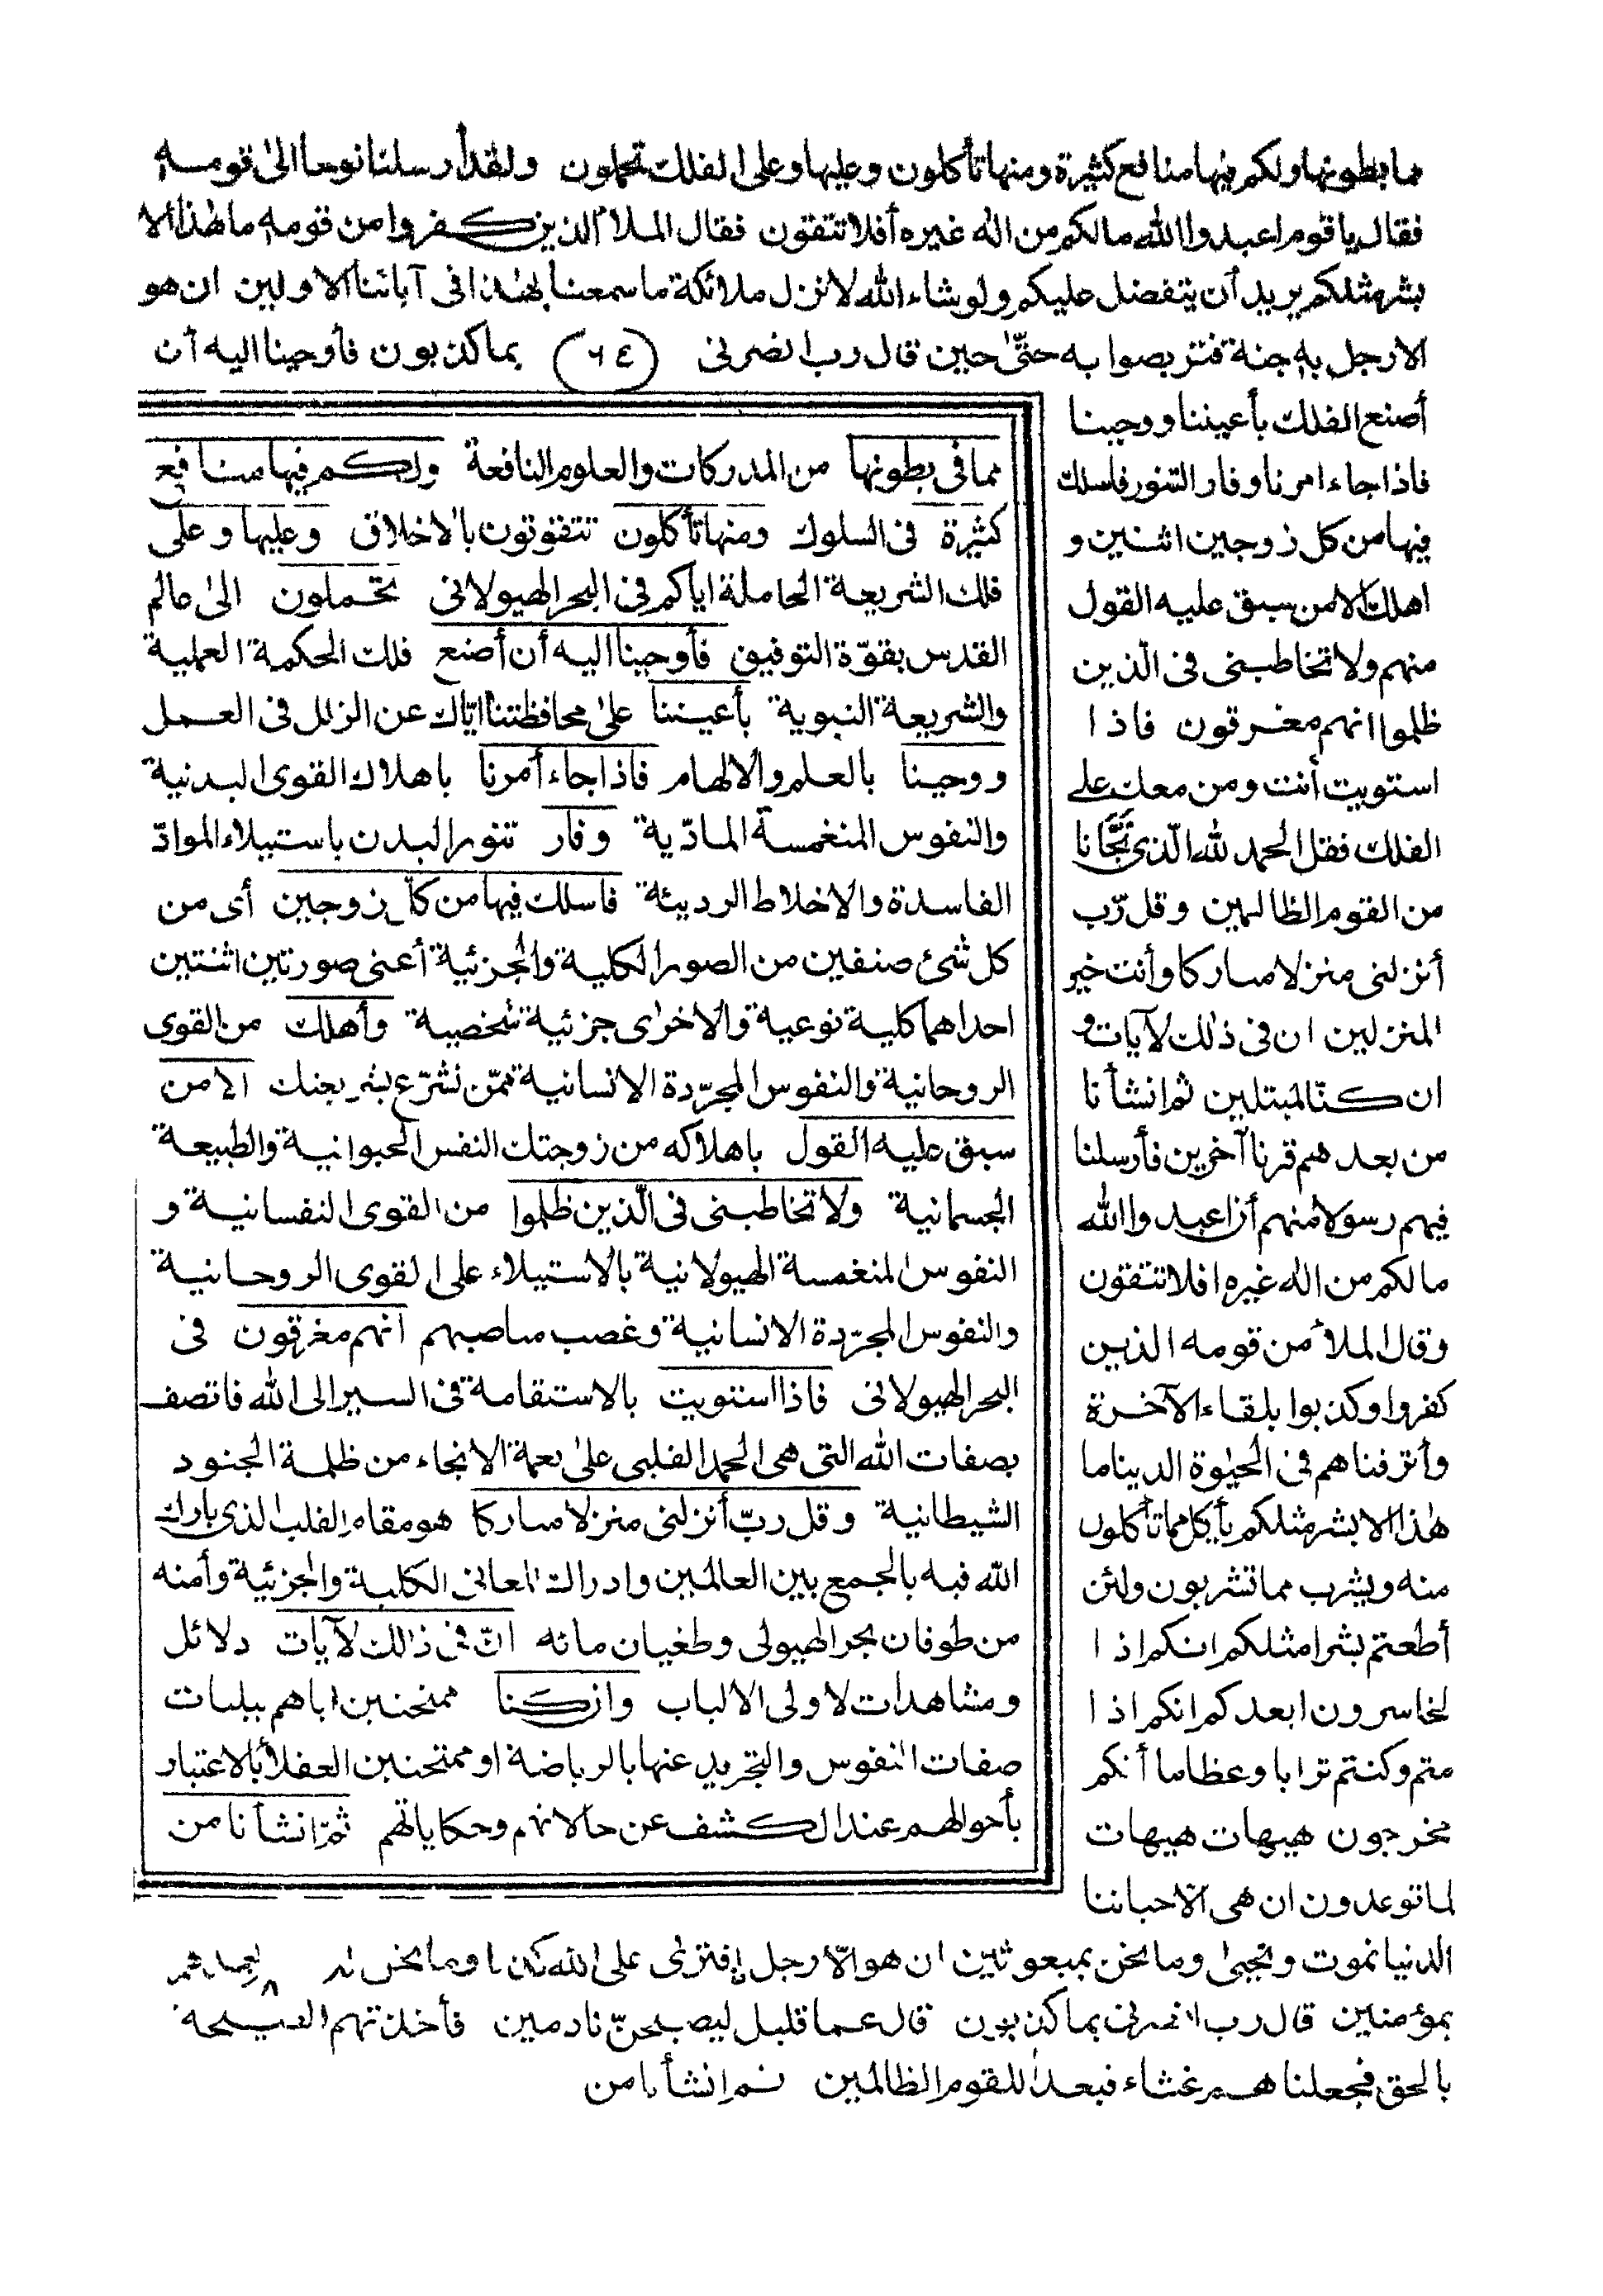 مما بطونها ولكم فيها منافع كثيرة ومنها تأكلون وعليها وعلى الفلك تحملون ولقد أرسلنا نوحا الى قومه
فقال يا قوم اعبدوا الله مالكم من اله غيره أفلا تتقون فقال الملأ الذين كفروا من قومه ما هذا الا
بشر مثلكم يريد أن يتفضل عليكم ولو شاء الله لانزل ملائكة ما سمعنا بهذا فى آبائنا الاولين ان هو
الا رجل به جنة فتربصوا به حتى حين قال رب انصرنى (٦٤) بما كذبون فأوحينا اليه أن
أصنع الفلك بأعيننا ووحينا
فاذا جاء امرنا وفار التنور فاسلك
فيها من كل زوجين اثنين و
اهلك الا من سبق عليه القول
منهم ولا تخاطبنى فى الذين
ظلموا انهم مغرقون فاذا
استويت أنت ومن معك على
الفلك فقل الحمد لله الذى نجّانا
من القوم الظالمين وقل رّب
أنزلنى منزلا مباركا وأنت خير
المنزلين ان فى ذلك لآيات و
ان كنّا لمبتلين ثم انشأنا
من بعدهم قرنا آخرين فأرسلنا
فيهم رسولا منهم أن اعبدوا الله
مالكم من اله غيره افلا تتقون
وقال الملأ من قومه الذين
كفروا وكذبوا بلقاء الآخرة
وأترفناهم فى الحيوة الدنيا ما
هذا الا بشر مثلكم يأكل مما تأكلون
منه ويشرب مما تشربون ولئن
أطعتم بشرا مثلكم انكم اذا
لخاسرون ايعدكم انكم اذا
متم وكنتم ترابا وعظاما أنكم
مخرجون هيهات هيهات
لما توعدون ان هى الّا حياتنا
الدنيا نموت ونحيى وما نحن بمبعوثين ان هو الّا رجل إفترى على الله كذبا وما نحن له
بمؤمنين قال رب انصرنى بما كذبون قال عما قليل ليصبحنّ نادمين فأخذتهم الصيحة
بالحق فجعلناهم غثاء فبعدا للقوم الظالمين ثم انشأنا من
مما فى بطونها من المدركات والعلوم النافعة ولكم فيها منافع
كثيرة فى السلوك ومنها تأكلون تتقوتون بالاخلاق وعليها وعلى
فلك الشريعة الحاملة اياكم فى البحر الهيولانى تحملون الى عالم
القدس بقوّة التوفيق فأوحينا اليه أن أصنع فلك الحكمة العملية
والشريعة النبوية بأعيننا على محافظتنا ايّاك عن الزلل فى العمل
ووحينا بالعلم والالهام فاذا جاء أمرنا باهلاك القوى البدنية
والنفوس المنغمسة المادّية وفار تنور البدن باستيلاء الموادّ
الفاسدة والاخلاط الرديئة فاسلك فيها من كل زوجين أى من
كل شئ صنفين من الصور الكلية والجزئية أعنى صورتين اثنتين
احداهما كلية نوعية والاخرى جزئية شخصية وأهلك من القوى
الروحانية والنفوس المجرّدة الانسانية ممّن تشرّع بشريعتك الا من
سبق عليه القول باهلاكه من زوجتك النفس الحيوانية والطبيعة
الجسمانية ولا تخاطبنى فى الّذين ظلموا من القوى النفسانية و
النفوس المنغمسة الهيولانية بالاستيلاء على القوى الروحانية
والنفوس المجرّدة الانسانية وغصب مناصبهم انهم مغرقون فى
البحر الهيولانى فاذا استويت بالاستقامة فى السير الى الله فاتصف
بصفات الله التى هى الحمد القلبى على نعمة الانجاء من ظلمة الجنود
الشيطانية وقل ربّ أنزلنى منزلا مباركا هو مقام القلب الذى بارك
الله فيه بالجمع بين العالمين وادراك المعانى الكلية والجزئية وأمنه
من طوفان بحر الهيولى وطغيان مائه انّ فى ذالك لآيات دلائل
ومشاهدات لاولى الالباب وان كنا ممتحنين اياهم ببليات
صفات النفوس والتجريد عنها بالرياضة او ممتحنين العقلاء بالاعتبار
بأحوالهم عند الكشف عن حالاتهم وحكاياتهم ثمّ انشأنا من